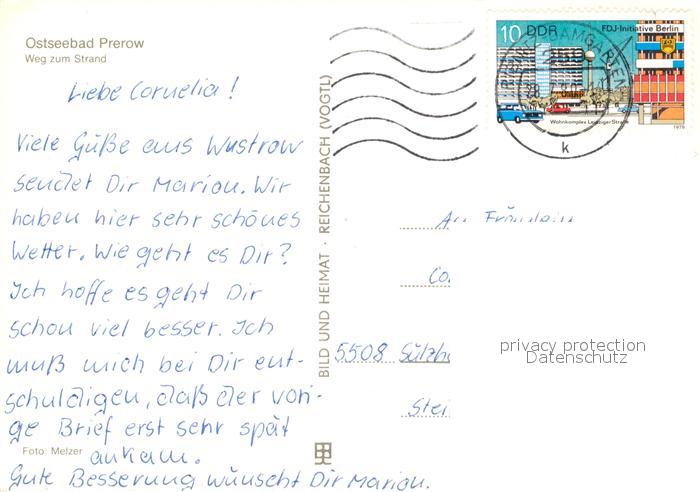 Ostseebad Prerow
Weg zum Strand
Liebe Cornelia!
Viele Güße aus Wustrow
sendet Dir Marion. Wir
haben hier sehr schönes
Wetter. Wie geht es Dir?
Ich hoffe es geht Dir
schon viel besser. Ich
muß mich bei Dir ent-
schuldigen, daß der vori-
ge Brief erst sehr spät
ankam.
Foto: Melzer
Gute Besserung wünscht Dir Marion.
BILD UND HEIMAT · REICHENBACH (VOGTL)
10 DDR FDJ-Initiative Berlin
Wohnkomplex Leipziger Straße
1979
k
An Fräulein
Co.
5508 Sülzh
Stei
privacy protection
Datenschutz